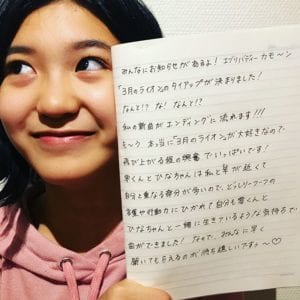 みんなにお知らせがあるよ！エヴリバディーカモ〜ン
「3月のライオン」のタイアップが決まりました！
なんと！？な！なんと！？
私の新曲がエンディングに流れます!!!
も〜ク 本当に「3月のライオン」が大好きなので
飛び上がる程の興奮でいっぱいです！
零くんとひなちゃんは私と年が近くて
自分と重なる部分が多いので、どっしりーつーつの
言葉や行動力にひかれて自分も零くんと
ひなちゃんと一緒に生きているような気持ちで
曲ができました！なので、みんなに早く
聞いてもらえるのが待ち遠しいですっ〜♡